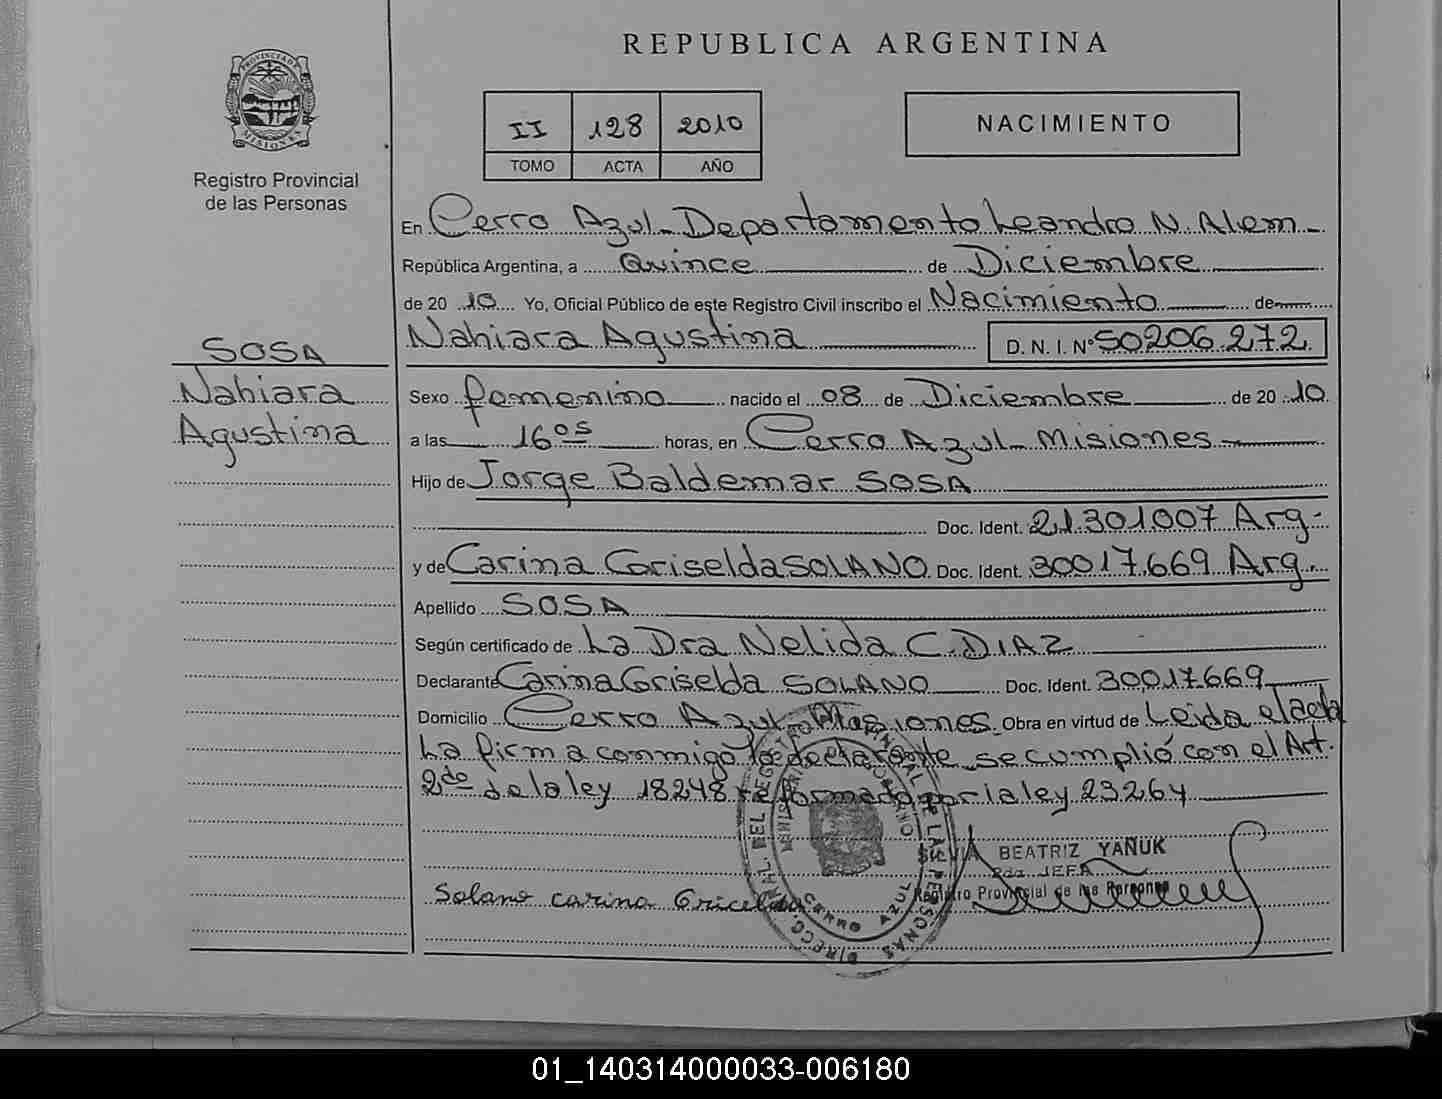 REPUBLICA ARGENTINA
PROVINCIA DE
MISIONES
Registro Provincial
de las Personas
II 128 2010
TOMO ACTA AÑO
NACIMIENTO
En Cerro Azul - Departamento Leandro N. Alem -
República Argentina, a Quince de Diciembre
de 20 10 Yo, Oficial Público de este Registro Civil inscribo el Nacimiento de
Nahiara Agustina D. N. I. Nº 50206.272.
SOSA
Nahiara
Agustina
Sexo femenino nacido el 08 de Diciembre de 20 10
a las 16 05 horas, en Cerro Azul - Misiones
Hijo de Jorge Baldemar SOSA
Doc. Ident. 21.301.007 Arg.
y de Carina Griselda SOLANO Doc. Ident. 30017.669 Arg.
Apellido SOSA
Según certificado de La Dra Nelida C. DIAZ
Declarante Carina Griselda SOLANO Doc. Ident. 30.017.669
Domicilio Cerro Azul - Misiones Obra en virtud de Leida el acta
La firma conmigo la declarante se cumplió con el Art.
2do de la ley 18248 reformado por la ley 23264
SILVIA BEATRIZ YAÑUK
2da JEFA
Registro Provincial de las Personas
Solano Carina Gricelda
CERRO AZUL
01_140314000033-006180